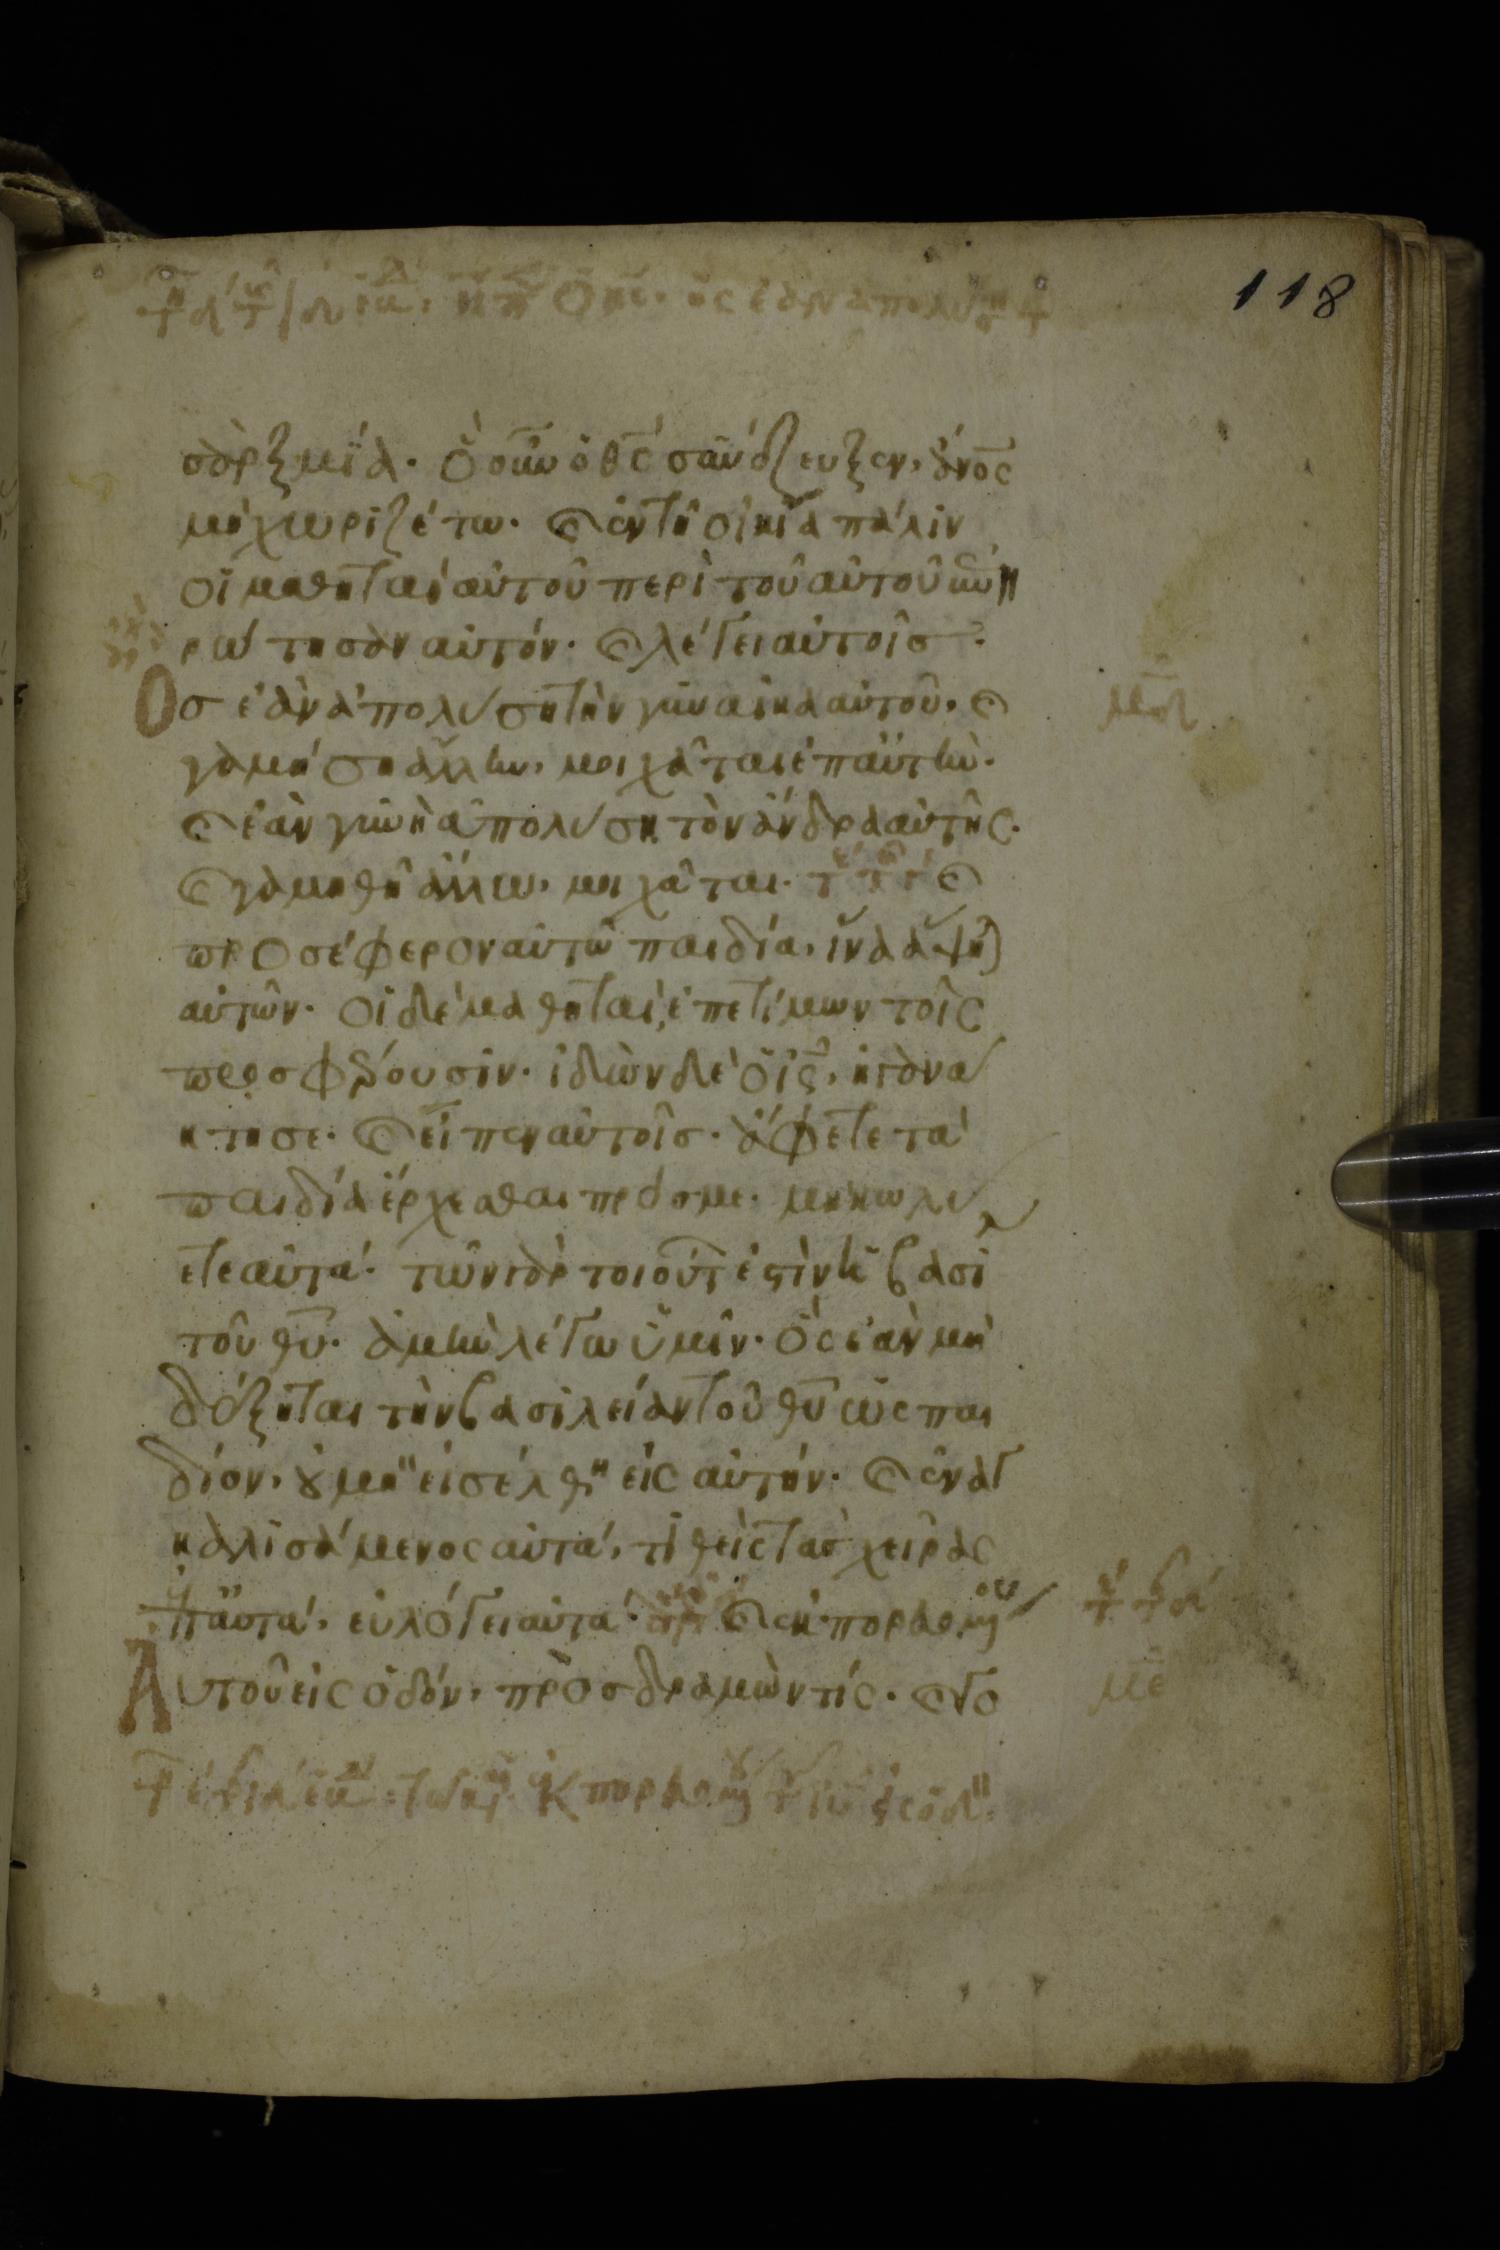 118
σὰρξ μία. Ὁ οὖν ὁ θς συνέζευξεν, ἄνος
μὴ χωριζέτω. ϗ ἐν τῆ οἰκία πάλιν
οἱ μαθηταὶ αὐτοῦ περὶ τοῦ αὐτοῦ ἐπη
ρώτησαν αὐτόν. ϗ λέγει αὐτοῖσ.
Οσ ἐὰν ἀπολύση τὴν γυναῖκα αὐτοῦ, ϗ
γαμήση ἄλλην, μοιχᾶται ἐπ αὐτήν.
ϗ ἐὰν γυνὴ ἀπολύση τὸν ἄνδρα αὐτῆς.
ϗ γαμηθῆ ἄλλω, μοιχᾶται. ϗ
προσέφερον αὐτῶ παιδία, ἵνα ἅψηται
αὐτῶν. οἱ δὲ μαθηταὶ, ἐπετίμων τοῖς
προσφέρουσιν. ἰδὼν δὲ ὁ ις, ἠγανά
κτησε. ϗ εἶπεν αὐτοῖσ. ἄφετε τὰ
παιδία ἔρχεσθαι πρόσ με. μὴ κωλύ
ετε αὐτά. τῶν γὰρ τοιούτ ἐστὶν ἡ βασι
τοῦ θυ. ἀμὴν λέγω ὑμῖν. ὃς ἐὰν μὴ
δέξηται τὴν βασιλείαν τοῦ θυ ὡς παι
δίον, οὐ μὴ εἰσέλθη εἰς αὐτήν. ϗ ἐναγ
καλισάμενος αὐτά, τιθεὶς τὰσ χεῖρας
ἐπ αὐτά, εὐλόγει αὐτά. ϗ ἐκπορευομένου
Αυτοῦ εἰς ὁδόν, πρὸσδραμὼν τίς. ϗ γο